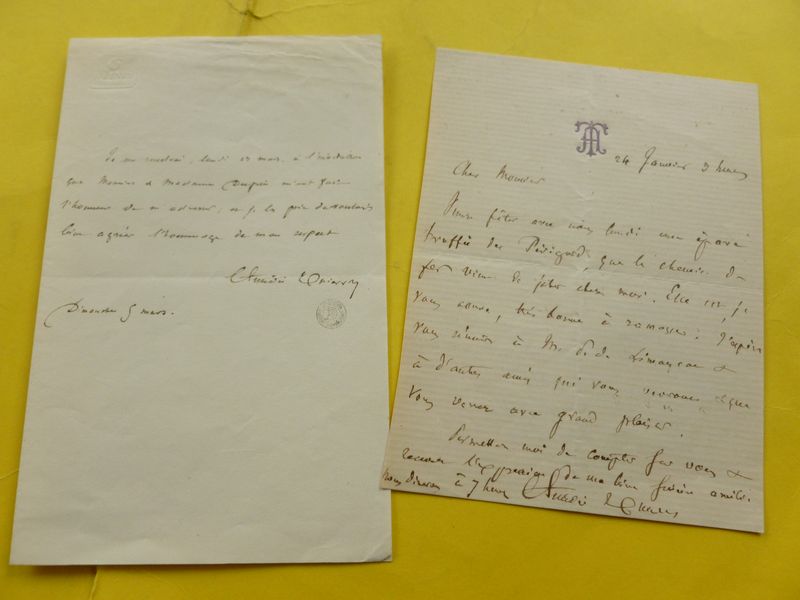 Je me rendrai, lundi 13 mars, à l'invitation
que Monsieur & Madame m'ont fait
l'honneur de m'adresser, et je les prie de vouloir
bien agréer l'hommage de mon respect
Amédée Thierry
Dimanche 5 mars.
AT
24 Janvier 3 heures
Cher Monsieur
Venez fêter avec nous lundi une
truffée du Périgord, que le chemin de
fer vient de jeter chez moi. Elle est, je
vous assure, très bonne à manger; j'espère
vous réunir à Mr. &
à d'autres amis qui vous
vous verrez avec grand plaisir.
Permettez moi de compter sur vous &
recevez l'expression de ma bien sincère amitié.
nous dînerons à 7 heures Amédée Thierry